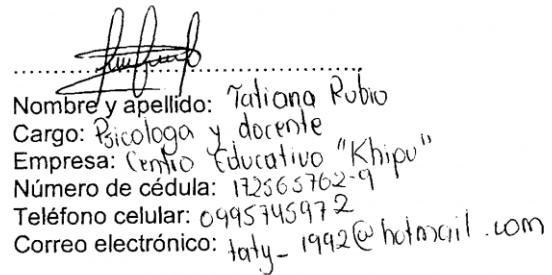 Nombre y apellido: Tatiana Rubio
Cargo: Psicologa y docente
Empresa: Centro Educativo "Khipu"
Número de cédula: 172565762-9
Teléfono celular: 0995745972
Correo electrónico: taty_1992@hotmail.com